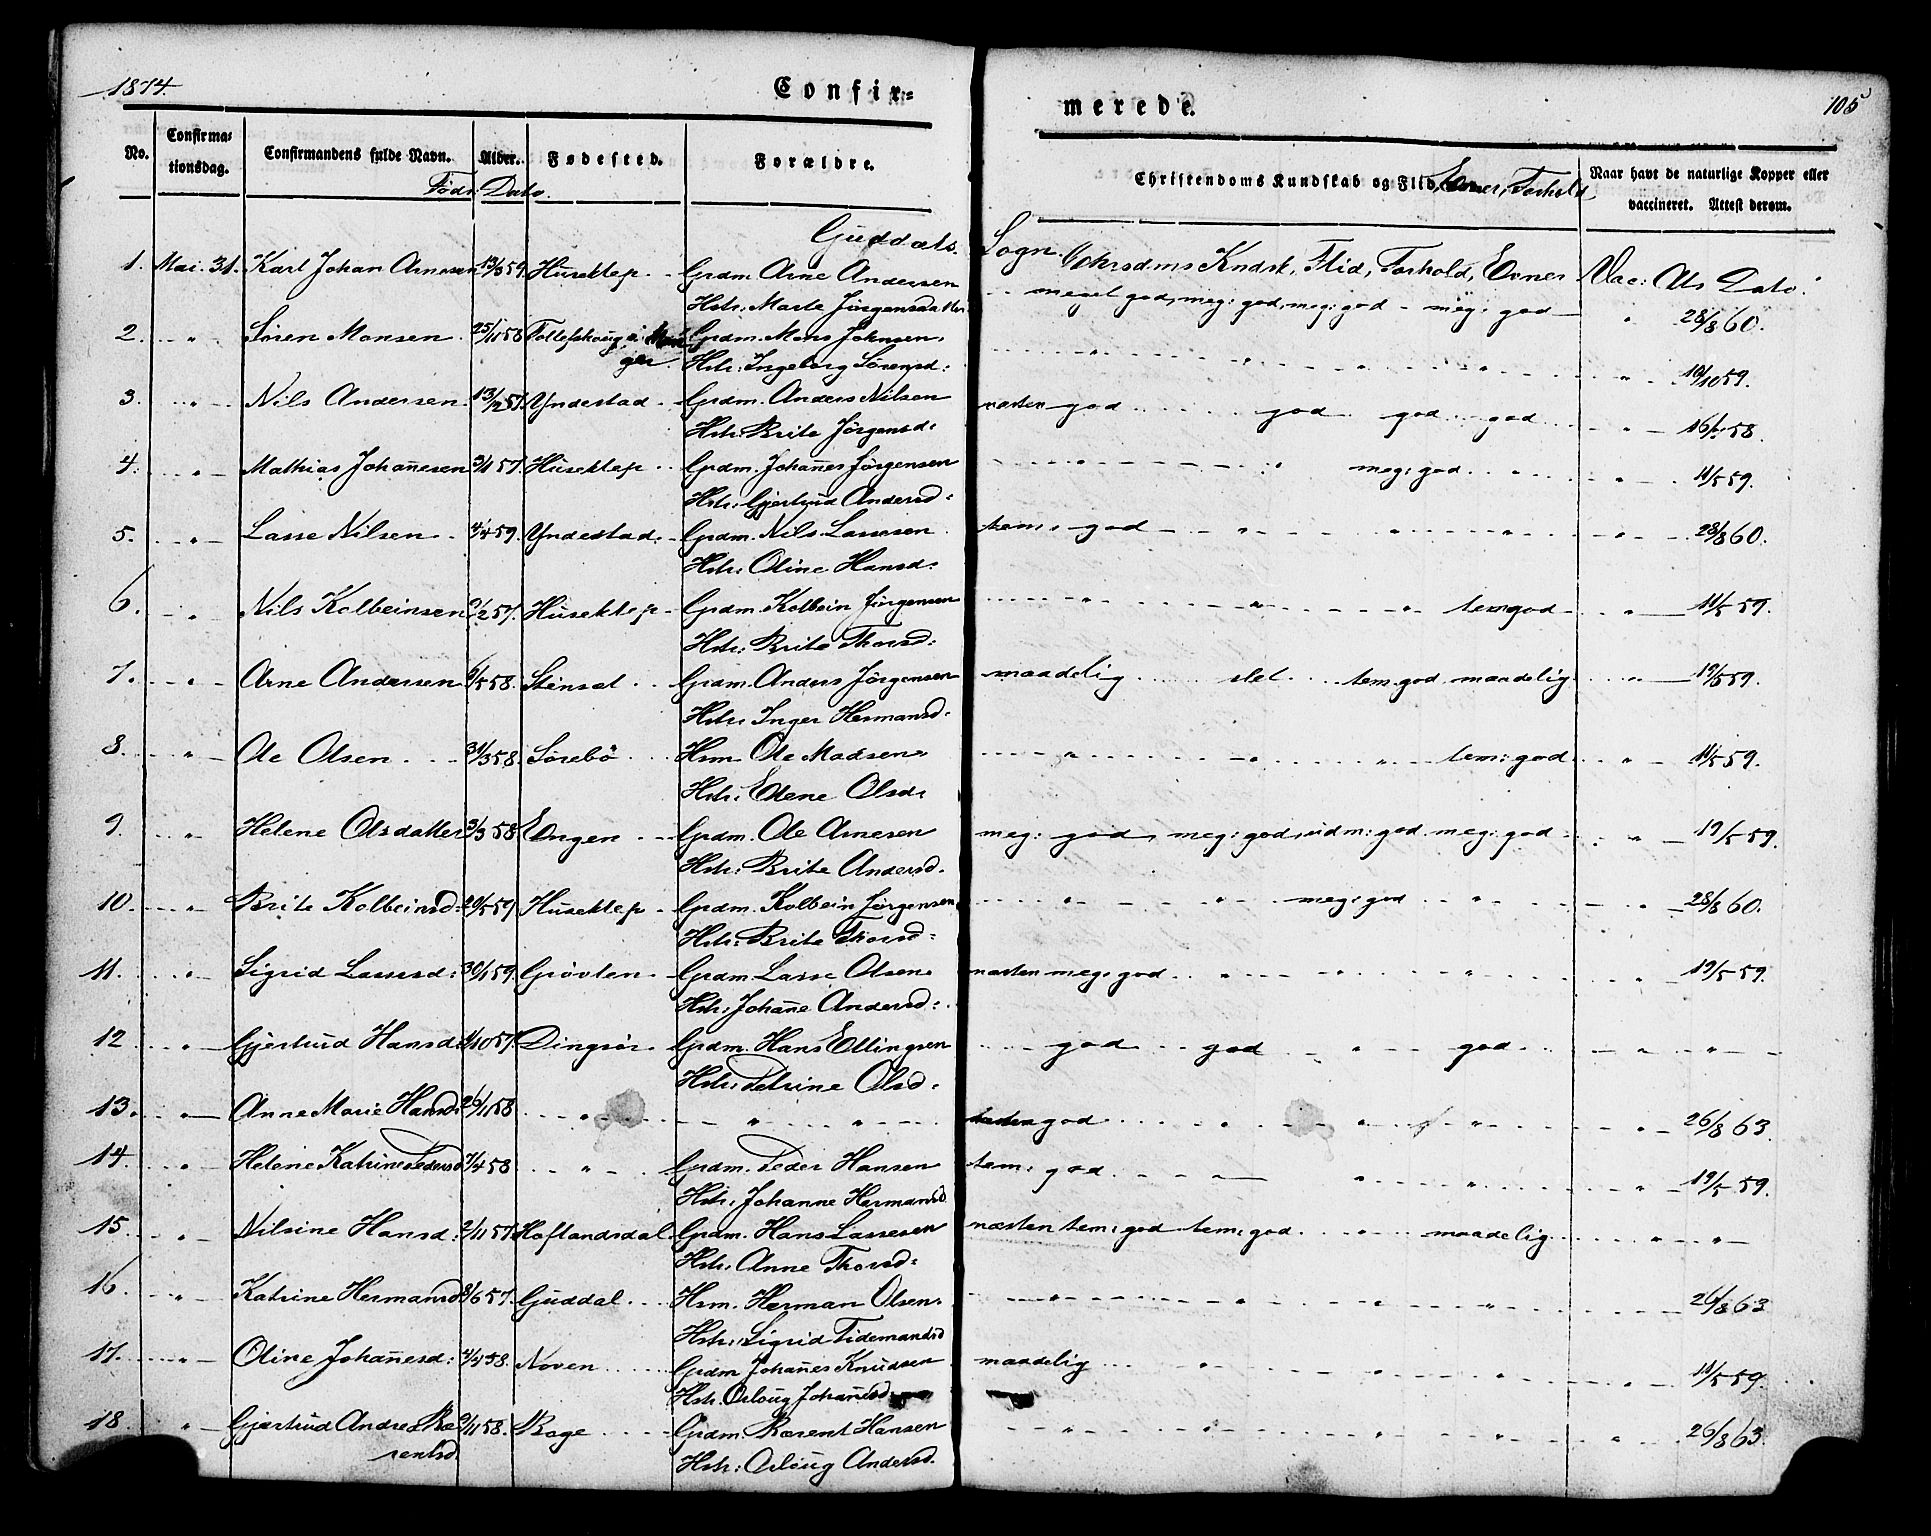 1874.
Confir-
merede.
105
No.
Confirma-
tionsdag.
Confirmandens fulde Navn.
Alder.
Fødested.
Forældre.
Føds: Dato.
Christendoms Kundskab og Flid, Evner, Forhold,
Naar havt de naturlige Kopper eller
vaccineret. Attest derom.
Guddals Sogn.
Chrsdms Kndsk, Flid, Forhold, Evner Vac: Ats Dato.
1. Mai. 31. Karl Johan Arnesen 13/3 59. Huseklep. Grdm. Arne Andersen meget god, meg: god, meg: god - meg: god " 28/8 60.
Hstr: Marte Jörgensdatter
2. " Sören Monsen 25/11 58 Tollefskoug i Grdm. Mons Johnsen. " " " " " 10/10 59.
ger. Hstr: Ingeborg Sörensd:
3. " Nils Andersen 13/12 57. Yndestad Grdm. Anders Nilsen næsten god god god god " 16/ 58.
Hstr: Brite Jörgensd:
4. " Mathias Johañesen 3/1 57. Huseklep Grdm. Johañes Jörgensen " " meg: god " " 11/5 59.
Hstr: Gjertrud Andersd:
5. " Lasse Nilsen 4/4 59. Yndestad. Grdm. Nils Lassesen tem: god " " " " 28/8 60.
Hstr: Oline Hansd:
6. " Nils Kolbeinsen /2 57. Huseklep Grdm. Kolbein Jörgensen " " " tem: god " 11/5 59.
Hstr: Brite Thorsd:
7. " Arne Andersen 6/5 58. Stensæt Grdm. Anders Jörgensen maadelig slet tem: god maadelig " 19/5 59.
Hstr: Inger Hermansd:
8. " Ole Olsen 31/3 58. Sörebö Hsm. Ole Madsen " " " tem: god " 11/5 59.
Hstr: Edene Olsd:
9. " Helene Olsdatter 3/3 58 Engen Grdm. Ole Arnesen meg: god, meg: god, udm: god meg: god " 19/5 59.
Hstr: Brite Andersd.
10. " Brite Kolbeinsd: 20/5 59 Huseklep Grdm. Kolbein Jörgensen " " meg: god " " 28/8 60.
Hstr: Brite Thorsd:
11. " Sigrid Lassesd: 30/1 59. Grövlen Grdm. Lasse Olsen næsten meg: god " " " " 19/5 59.
Hstr: Johañe Andersd:
12 " Gjertrud Hansd: /10 57. Dingsör Grdm. Hans Ellingsen god god " god " "
Hstr: Petrine Olsd:
13. " Anne Marie Hansd: 26/11 58 " " " næsten god " " " " 26/8 63.
14. " Helene Katrine Pedersd 7/4 58 " Grdm. Peder Hansen tem: god " " " " 19/5 59.
Hstr: Johanne Hermansd
15. " Nilsine Hansd: 2/11 57. Haflandsdal Grdm. Hans Lassesen næsten tem: god tem: god " maadelig " "
Hstr: Anne Thorsd:
16. " Katrine Hermansd 8/6 57. Guddal Hsm. Herman Olsen. " " " " 26/8 63
Hstr: Sigrid Tidemandsd
17. " Oline Johañesd: 4/4 58. Noven Grdm Johañes Knudsen maadelig " " " " 11/5 59.
Hstr: Orloug Johañesd
18. " Gjertrud Andrea Ba- /11 58. Boge Grdm. Barent Hansen " " " " " 26/8 63.
rentsd Hstr: Orloug Andersd.